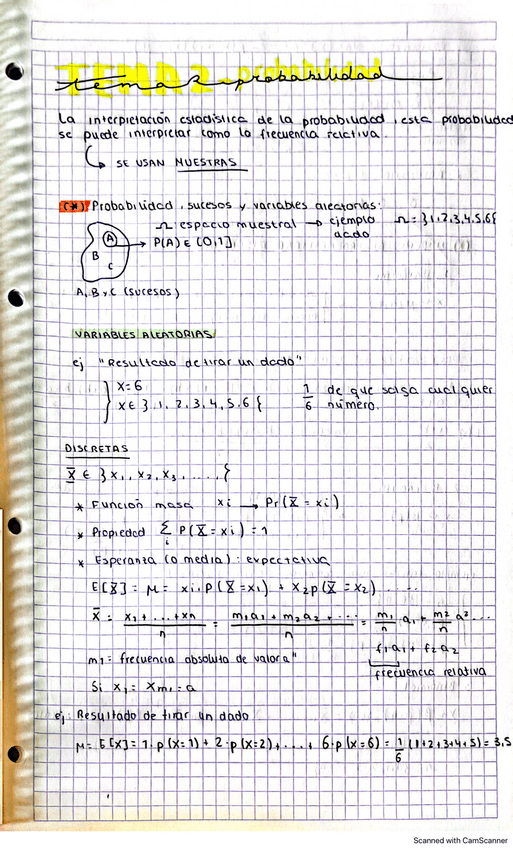 TEMA 2 - probabilidad
tema 2 probabilidad
La interpretación estadística de la probabilidad, esta probabilidad
se puede interpretar como la frecuencia relativa.
↳ SE USAN MUESTRAS
(*) Probabilidad, sucesos y variables aleatorias:
Ω espacio muestral → ejemplo dado Ω = }1,2,3,4,5,6{
A → P(A) ∈ [0,1]
B
C
A, B y C (sucesos)
VARIABLES ALEATORIAS
ej "Resultado de tirar un dado"
x=6
x ∈ }.1, 2, 3, 4, 5, 6 {
1/6 de que salga cualquier número.
DISCRETAS
X ∈ } x1, x2, x3, ..... {
* Función masa xi → Pr(X = xi)
* Propiedad Σi P(X = xi) = 1
* Esperanza (o media): expectativa
E[X] = M = xi.P(X=x1) + x2p(X=x2) .....
X̄ = x1+....+xn/n = m1a1 + m2a2 +..../n = m1/n a1 + m2/n a² ...
f1a1 + f2a2
frecuencia relativa
m1 = frecuencia absoluta de valor a"
Si x1 = xm1 = a
ej. Resultado de tirar un dado
M = E[X] = 1.p(x=1) + 2.p(x=2)+....+ 6.p(x=6) = 1/6 (1+2+3+4+5) = 3,5
Scanned with CamScanner